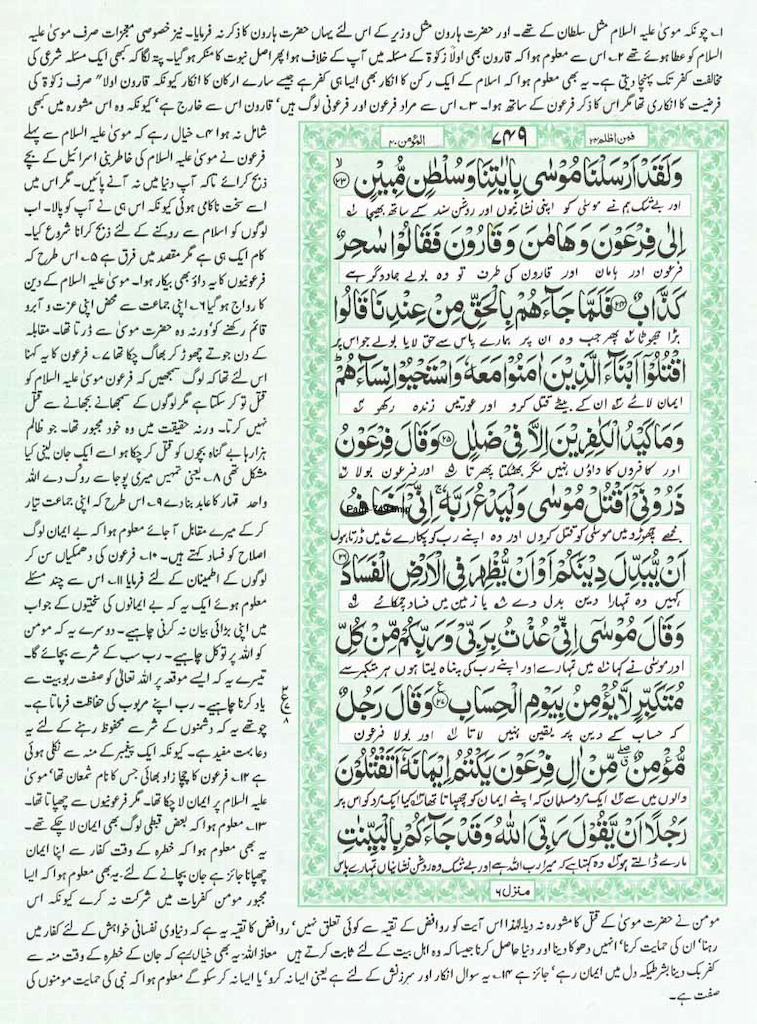 ۱؎ چونکہ موسیٰ علیہ السلام مثل سلطان کے تھے۔ اور حضرت ہارون مثل وزیر کے اس لئے یہاں حضرت ہارون کا ذکر نہ فرمایا۔ نیز خصوصی معجزات صرف موسیٰ علیہ
السلام کو عطا ہوئے تھے ۲؎ اس سے معلوم ہوا کہ قارون بھی اولاً زکوٰۃ کے مسئلہ میں آپ کے خلاف ہوا پھر اصل نبوت کا منکر ہو گیا۔ پتہ لگا کہ کبھی ایک مسئلہ شرعی کی
مخالفت کفر تک پہنچا دیتی ہے۔ یہ بھی معلوم ہوا کہ اسلام کے ایک رکن کا انکار بھی ایسا ہی کفر ہے جیسے سارے ارکان کا انکار کیونکہ قارون اولاً" صرف زکوٰۃ کی
فرضیت کا انکاری تھا مگر اس کا ذکر فرعون کے ساتھ ہوا۔ ۳؎ اس سے مراد فرعون اور فرعونی لوگ ہیں' قارون اس سے خارج ہے' کیونکہ وہ اس مشورہ میں کبھی
شامل نہ ہوا ۴؎ خیال رہے کہ موسیٰ علیہ السلام سے پہلے
فرعون نے موسیٰ علیہ السلام کی خاطر بنی اسرائیل کے بچے
ذبح کرائے تاکہ آپ دنیا میں نہ آنے پائیں۔ مگر اس میں
اسے سخت ناکامی ہوئی کیونکہ اس ہی نے آپ کو پالا۔ اب
لوگوں کو اسلام سے روکنے کے لئے ذبح کرانا شروع کیا۔
کام ایک ہی ہے مگر مقصد میں فرق ہے ۵؎ اس طرح کہ
فرعونیوں کا یہ داؤ بھی بیکار ہوا۔ موسیٰ علیہ السلام کے دین
کا رواج ہو گیا ۶؎ اپنی جماعت سے محض اپنی عزت و آبرو
قائم رکھنے کو' ورنہ وہ حضرت موسیٰ سے ڈرتا تھا۔ مقابلہ
کے دن جوتے چھوڑ کر بھاگ چکا تھا ۷؎ فرعون کا یہ کہنا
اس لئے تھا کہ لوگ سمجھیں کہ فرعون موسیٰ علیہ السلام کو
قتل تو کر سکتا ہے مگر لوگوں کے سمجھانے بجھانے سے قتل
نہیں کرتا۔ ورنہ حقیقت میں وہ خود مجبور تھا۔ جو ظالم
ہزارہا بے گناہ بچوں کو قتل کر چکا ہو اسے ایک جان لینی کیا
مشکل تھی ۸؎ یعنی تمہیں میری پوجا سے روک دے اللہ
واحد قہار کا عابد بنا دے ۹؎ اس طرح کہ اپنی جماعت تیار
کر کے میرے مقابل آ جائے معلوم ہوا کہ بے ایمان لوگ
اصلاح کو فساد کہتے ہیں۔ ۱۰؎ فرعون کی دھمکیاں سن کر
لوگوں کے اطمینان کے لئے فرمایا ۱۱؎ اس سے چند مسئلے
معلوم ہوئے ایک یہ کہ بے ایمانوں کی سختیوں کے جواب
میں اپنی بڑائی بیان نہ کرنی چاہیے۔ دوسرے یہ کہ مومن
کو اللہ پر توکل چاہیے۔ رب سب کے شر سے بچائے گا۔
تیسرے یہ کہ ایسے موقعہ پر اللہ تعالیٰ کو صفت ربوبیت سے
یاد کرنا چاہیے۔ رب اپنے مربوب کی حفاظت فرماتا ہے۔
چوتھے یہ کہ دشمنوں کے شر سے محفوظ رہنے کے لئے یہ
دعا بہت مفید ہے۔ کیونکہ ایک پیغمبر کے منہ سے نکلی ہوئی
ہے ۱۲؎ فرعون کا چچا زاد بھائی جس کا نام شمعان تھا' موسیٰ
علیہ السلام پر ایمان لا چکا تھا۔ مگر فرعونیوں سے چھپاتا تھا۔
۱۳؎ معلوم ہوا کہ بعض قبطی لوگ بھی ایمان لا چکے تھے۔
یہ بھی معلوم ہوا کہ خطرہ کے وقت کفار سے اپنا ایمان
چھپانا جائز ہے جان بچانے کے لئے' یہ بھی معلوم ہوا کہ ایسا
مجبور مومن کفریات میں شرکت نہ کرے کیونکہ اس
فمن اظلم ۲۴
۷۴۹
المؤمن ۴۰
وَلَقَدْ اَرْسَلْنَا مُوْسٰى بِاٰيٰتِنَا وَسُلْطٰنٍ مُّبِيْنٍ ﴿۲۳﴾
اور بے شک ہم نے موسیٰ کو اپنی نشانیوں اور روشن سند کے ساتھ بھیجا
اِلٰى فِرْعَوْنَ وَهَامٰنَ وَقَارُوْنَ فَقَالُوْا سٰحِرٌ
فرعون اور ہامان اور قارون کی طرف تو وہ بولے جادوگر ہے
كَذَّابٌ ﴿۲۴﴾ فَلَمَّا جَآءَهُمْ بِالْحَقِّ مِنْ عِنْدِنَا قَالُوا
بڑا جھوٹا پھر جب وہ ان پر ہمارے پاس سے حق لایا بولے جو اس پر
اقْتُلُوْٓا اَبْنَآءَ الَّذِيْنَ اٰمَنُوْا مَعَهٗ وَاسْتَحْيُوْا نِسَآءَهُمْ
ایمان لائے ان کے بیٹے قتل کرو اور عورتیں زندہ رکھو
وَمَا كَيْدُ الْكٰفِرِيْنَ اِلَّا فِيْ ضَلٰلٍ ﴿۲۵﴾ وَقَالَ فِرْعَوْنُ
اور کافروں کا داؤں نہیں مگر بھٹکتا پھرتا اور فرعون بولا
ذَرُوْنِيْٓ اَقْتُلْ مُوْسٰى وَلْيَدْعُ رَبَّهٗ ۚ اِنِّيْٓ اَخَافُ
Page-749.bmp
مجھے چھوڑو میں موسیٰ کو قتل کروں اور وہ اپنے رب کو پکارے میں ڈرتا ہوں
اَنْ يُّبَدِّلَ دِيْنَكُمْ اَوْ اَنْ يُّظْهِرَ فِي الْاَرْضِ الْفَسَادَ ﴿۲۶﴾
کہیں وہ تمہارا دین بدل دے یا زمین میں فساد چمکائے
وَقَالَ مُوْسٰٓى اِنِّيْ عُذْتُ بِرَبِّيْ وَرَبِّكُمْ مِّنْ كُلِّ
اور موسیٰ نے کہا میں تمہارے اور اپنے رب کی پناہ لیتا ہوں ہر متکبر سے
مُتَكَبِّرٍ لَّا يُؤْمِنُ بِيَوْمِ الْحِسَابِ ﴿۲۷﴾ وَقَالَ رَجُلٌ
کہ حساب کے دین پر یقین نہیں لاتا اور بولا فرعون
مُّؤْمِنٌ ۖ مِّنْ اٰلِ فِرْعَوْنَ يَكْتُمُ اِيْمَانَهٗٓ اَتَقْتُلُوْنَ
والوں میں سے ایک مرد مسلمان کہ اپنے ایمان کو چھپاتا تھا کیا ایک مرد کو اس پر
رَجُلًا اَنْ يَّقُوْلَ رَبِّيَ اللّٰهُ وَقَدْ جَآءَكُمْ بِالْبَيِّنٰتِ
مارے ڈالتے ہو کہ وہ کہتا ہے میرا رب اللہ ہے اور بے شک وہ روشن نشانیاں تمہارے پاس
منزل ۶
مومن نے حضرت موسیٰ کے قتل کا مشورہ نہ دیا۔ لہٰذا اس آیت کو روافض کے تقیہ سے کوئی تعلق نہیں' روافض کا تقیہ یہ ہے کہ دنیاوی نفسانی خواہش کے لئے کفار میں
رہنا' ان کی حمایت کرنا' انہیں دھوکا دینا اور دنیا حاصل کرنا جیسا کہ وہ اہل بیت کے لئے ثابت کرتے ہیں معاذ اللہ' یہ بھی خیال رہے کہ جان کے خطرہ کے وقت منہ سے
کفر بک دینا بشرطیکہ دل میں ایمان رہے' جائز ہے ۱۴؎ یہ سوال انکار اور سرزنش کے لئے ہے یعنی ایسا نہ کرو' یا ایسا نہ کر سکو گے معلوم ہوا کہ نبی کی حمایت مومنوں کی
صفت ہے۔